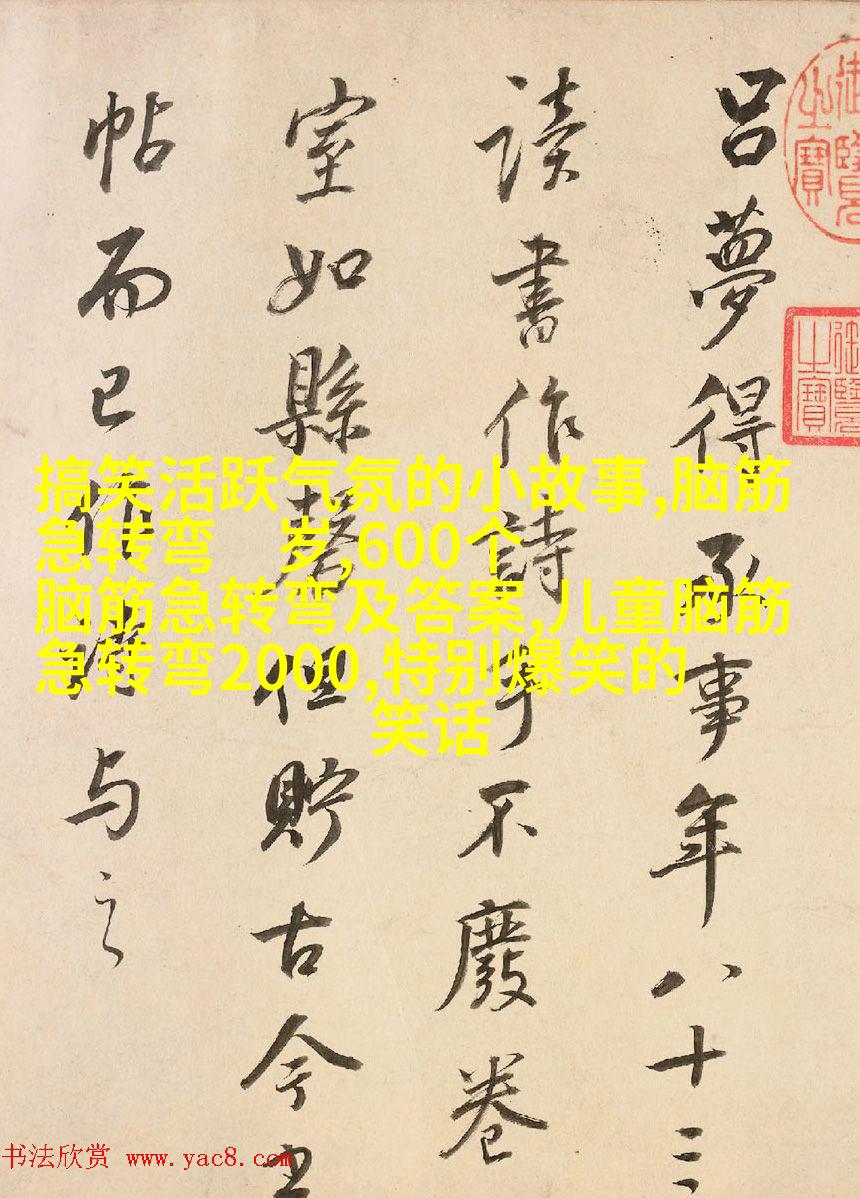 呂夢得承事年八十三
讀書作詩手不廢卷
室如縣磬但貯古今
帖而已作詩与之
搞笑活跃气氛的小故事,脑筋
急转弯 岁,600个
脑筋急转弯及答案,儿童脑筋
急转弯2000,特别爆笑的
笑话
御覽之寶
御覽之寶
书法欣赏 www.yac8.com